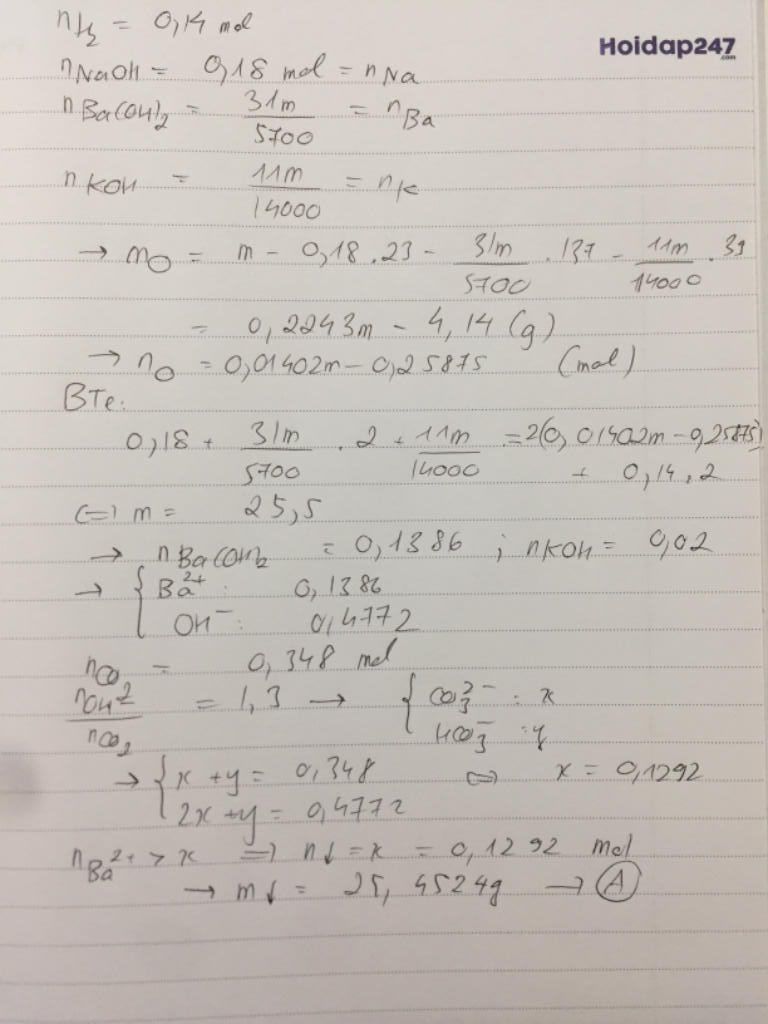 nH₂ = 0,14 mol
Hoidap247
.com
nNaOH = 0,18 mol = nNa
nBa(OH)₂ = 31m/5700 = nBa
nKOH = 11m/14000 = nK
→ mO = m - 0,18.23 - 31m/5700 .137 - 11m/14000 .39
= 0,2243m - 4,14 (g)
→ nO = 0,01402m - 0,25875 (mol)
BTe:
0,18 + 31m/5700 .2 + 11m/14000 = 2(0,01402m - 0,25875)
+ 0,14.2
(=) m = 25,5
→ nBa(OH)₂ = 0,1386 ; nKOH = 0,02
→ { Ba²⁺ : 0,1386
OH⁻ : 0,4772
nCO₂ = 0,348 mol
nOH⁻/nCO₂ = 1,3 → { CO₃²⁻ : x
HCO₃⁻ : y
→ { x + y = 0,348 ⇔ x = 0,1292
2x + y = 0,4772
nBa²⁺ > x => n↓ = x = 0,1292 mol
→ m↓ = 25,4524g → A